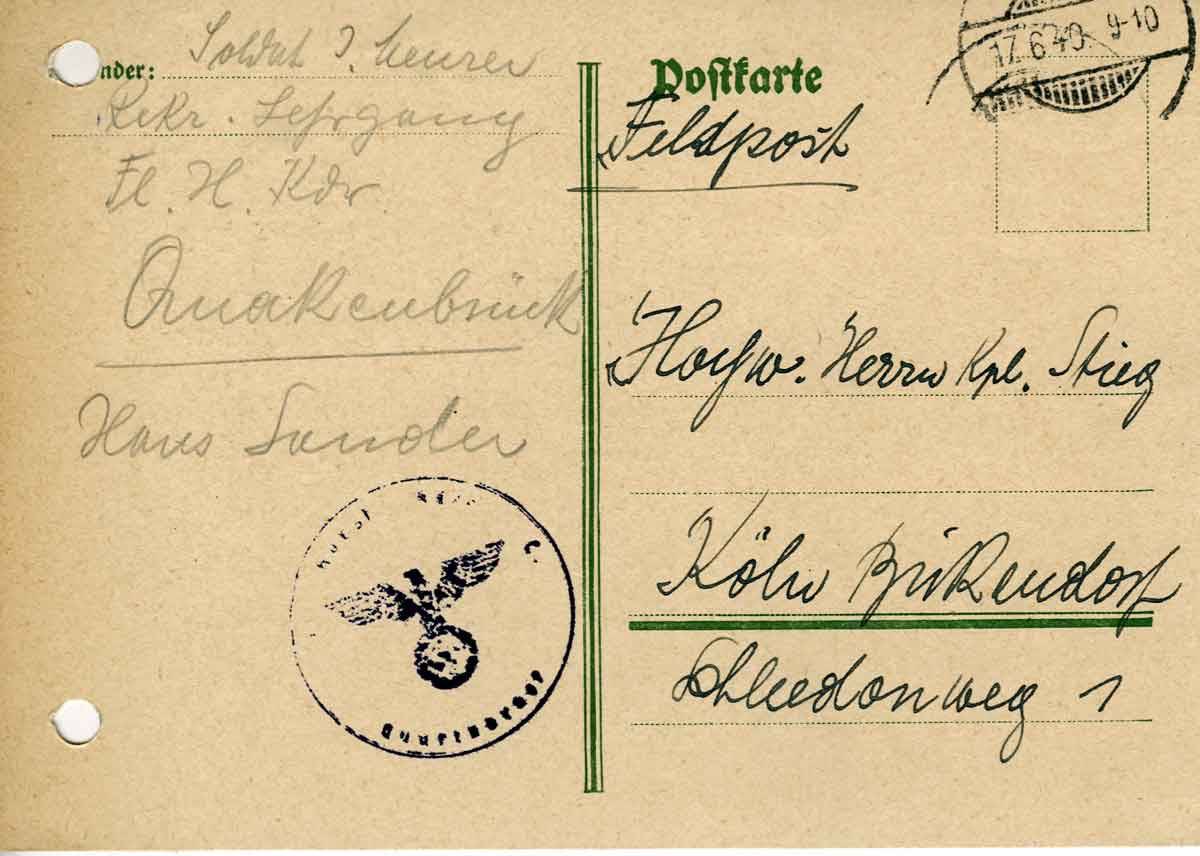 nder: Soldat J. Meurer
Rekr. Lehrgang
Fl. H. Kdr.
Quakenbrück
Hans Sander
Postkarte
Feldpost
17.6.40. 9-10
Hochw. Herrn Kpl. Stieg
Köln Bickendorf
Schleedornweg 1